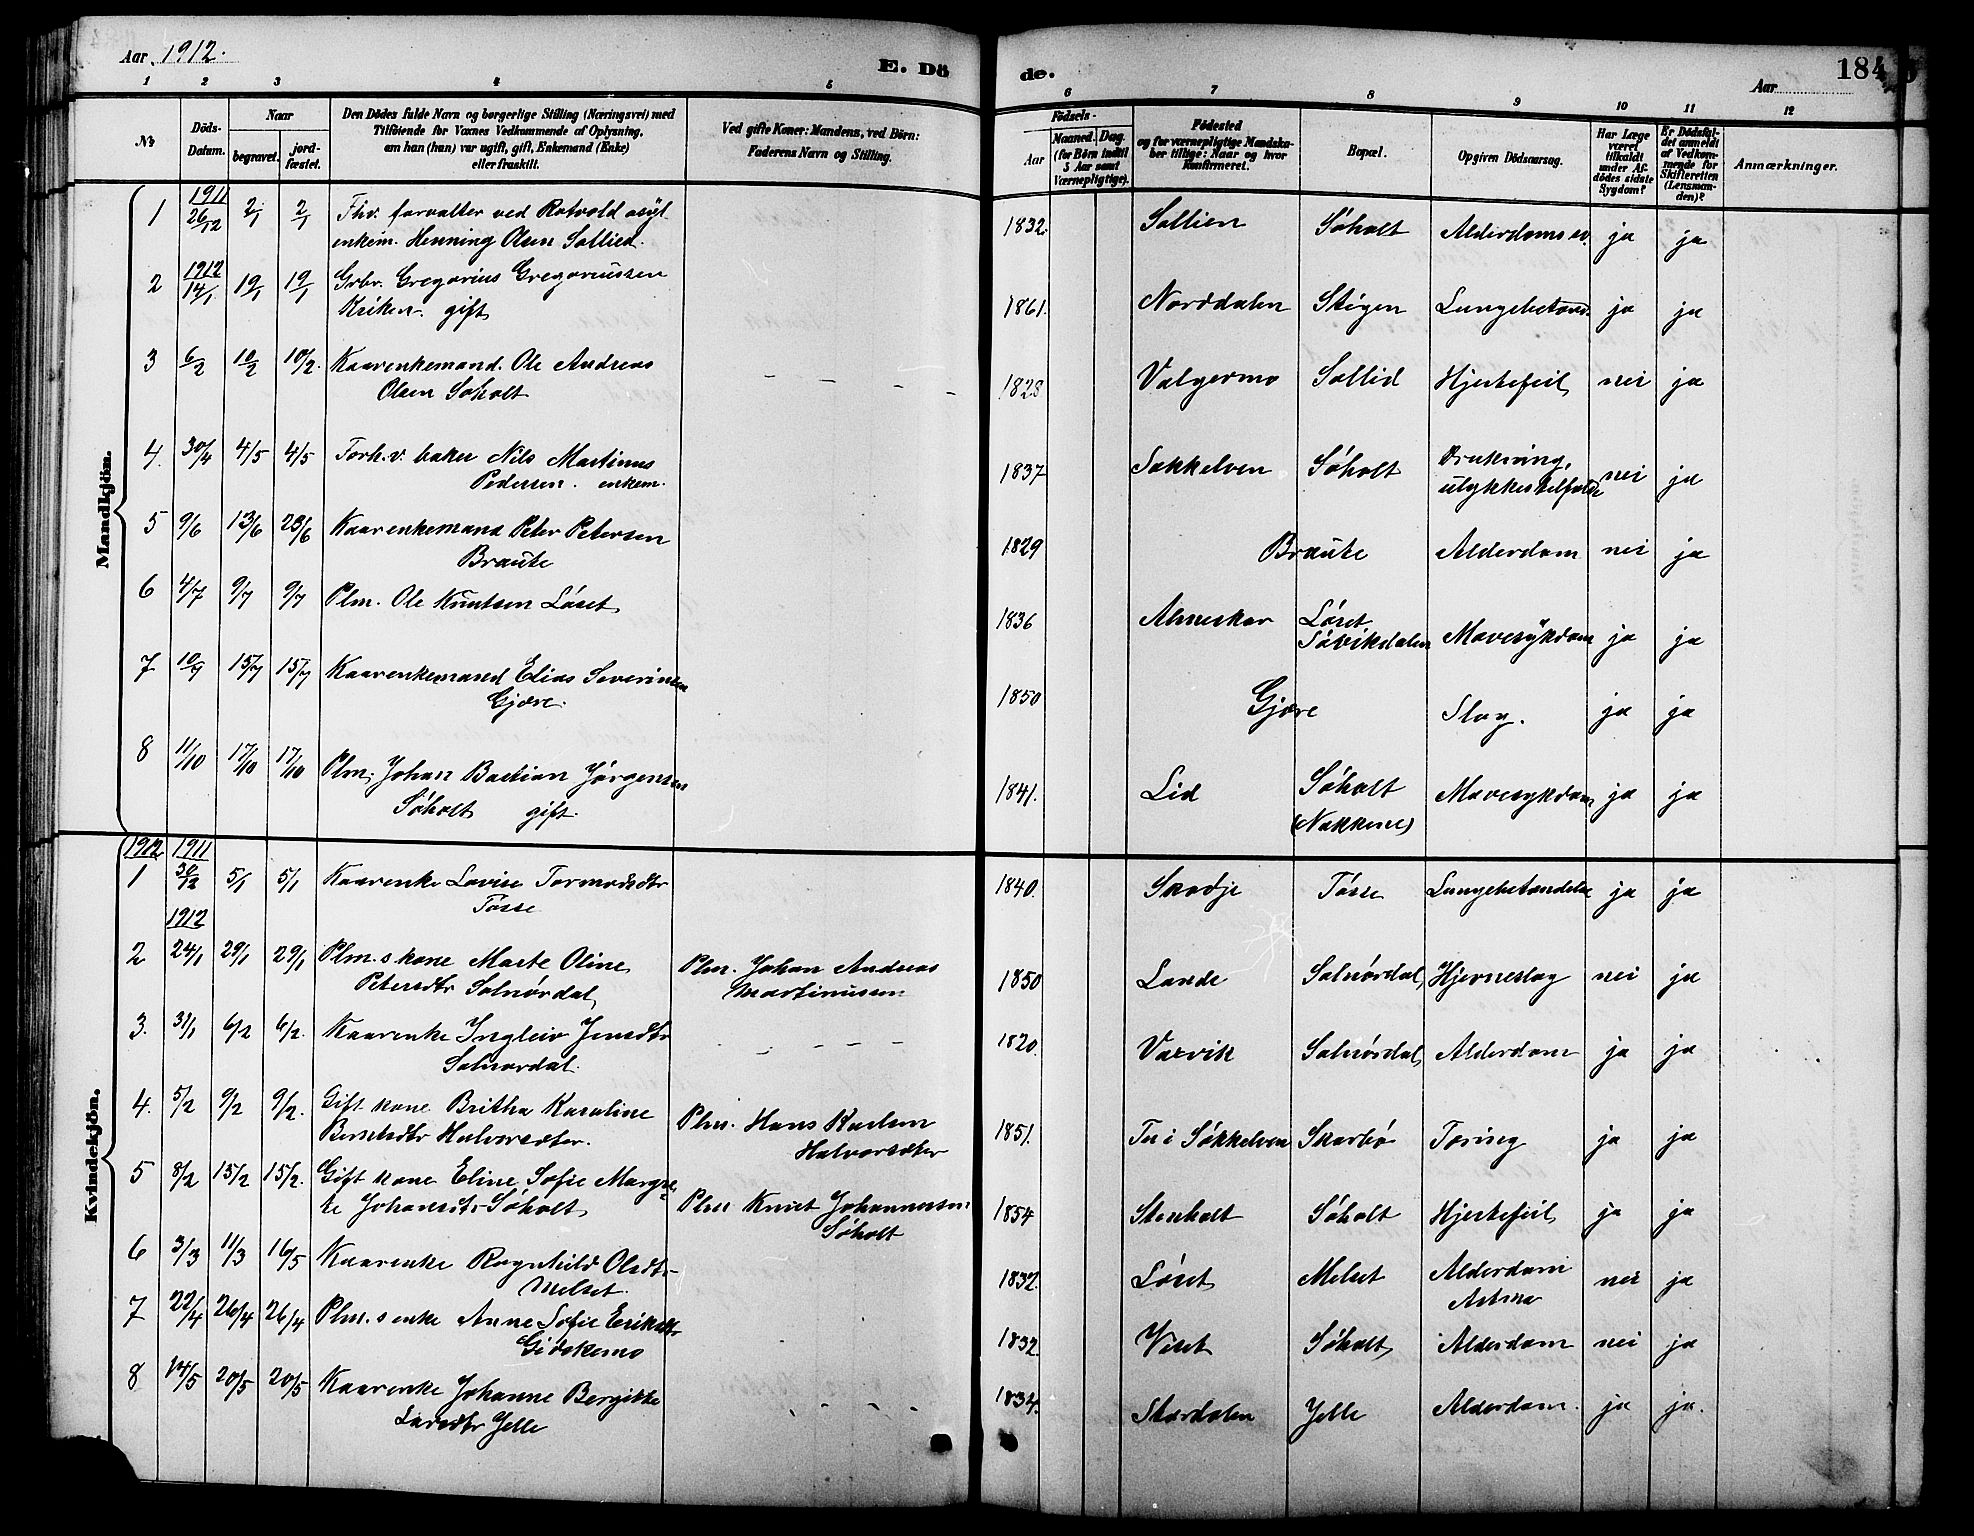 Aar 1912.
E. Dö
de.
Aar
184
1 2 3 4 5 6 7 8 9 10 11 12
No
Döds-
Datum.
Naar
begravet.
jord-
fæstet.
Den Dödes fulde Navn og borgerlige Stilling (Næringsvei) med
Tilföiende for Voxnes Vedkommende af Oplysning,
om han (hun) var ugift, gift, Enkemand (Enke)
eller fraskilt.
Ved gifte Koner: Mandens, ved Börn:
Faderens Navn og Stilling.
Födsels-
Aar
Maaned. Dag.
(for Börn indtil
5 Aar samt
Værnepligtige).
Födested
og for værnepligtige Mandska-
ber tillige: Naar og hvor
konfirmeret.
Bopæl.
Opgiven Dödsaarsag.
Har Læge
været
tilkaldt
under Af-
dödes sidste
Sygdom?
Er Dödsfal-
det anmeldt
af Vedkom-
mende for
Skifteretten
(Lensman-
den)?
Anmærkninger.
Mandkjön.
1 1911 26/12 2/1 2/1 Fhv. forvalter ved Rotvold asyl 1832. Sollien Søholt Alderdomssv. ja ja
enkem. Henning Olsen Sollied.
2 1912 14/1 19/1 19/1 Grbr. Gregorius Gregoriussen 1861. Norddalen Stigen Lungebetænd. ja ja
Kriken. gift
3 6/2 10/2 10/2. Kaarenkemand. Ole Andreas - - - - 1828 Valgermo Sollid Hjertefeil nei ja
Olsen Søholt
4. 30/4 4/5 4/5 Forh.v. baker Nils Martinus 1837 Søkkelven Søholt Drukning, nei ja
Pedersen. enkem. ulykkestilfælde
5 9/6 13/6 23/6 Kaarenkemand Peter Petersen 1829 Braute Alderdom nei ja
Braute
6 4/7 9/7 9/7 Plm. Ole Knutsen Løset 1836 Almeskar Løset
Søvikdalen Mavesykdom ja ja
7 10/7 15/7 15/7 Kaarenkemand Elias Severinsen 1850 Gjøre Slag. ja ja
Gjøre.
8 11/10 17/10 17/10 Plm. Johan Bastian Jørgensen 1841. Lid Søholt Mavesykdom ja ja
Søholt gift. (Nakkene)
Kvindekjön.
1912 1911
1 30/12 5/1 5/1 Kaarenke Lovise Tormodsdtr 1840. Skodje Tøsse Lungebetændelse ja ja
Tøsse
1912
2 24/1 29/1 29/1 Plm.s kone Marte Oline Plm. Johan Andreas 1850 Lande Solnørdal Hjerneslag nei ja
Petersdtr Solnørdal Martinussen
3. 31/1 6/2 6/2. Kaarenke Ingleiv Jensdtr - - - - 1820. Vaxvik Solnørdal Alderdom ja ja
Solnordal.
4. 5/2 9/2 9/2. Gift kone Britha Karoline Plm. Hans Karlsen 1851. Tu i Søkkelven Skarbø Tæring ja ja
Berntsdtr Halvorsæter. Halvorsæter
5 8/2 15/2 15/2. Gift kone Eline Sofie Margre- Plm Knut Johannessen 1854 Stenholt Søholt Hjertefeil ja ja
te Johansdtr Søholt Søholt
6 3/3 11/3 16/5 Kaarenke Ragnhild Olsdtr 1832. Løset Melset Alderdom nei ja
Melset. Astma
7 22/4 26/4 26/4 Plm.s enke Anne Sofie Eriksdtr 1832. Viset Søholt Alderdom nei ja
Gidskemo
8 14/5 20/5 20/5 Kaarenke Johanne Bergitte - - - - 1834. Stordalen Jelle Alderdom. ja ja.
Larsdtr Jelle